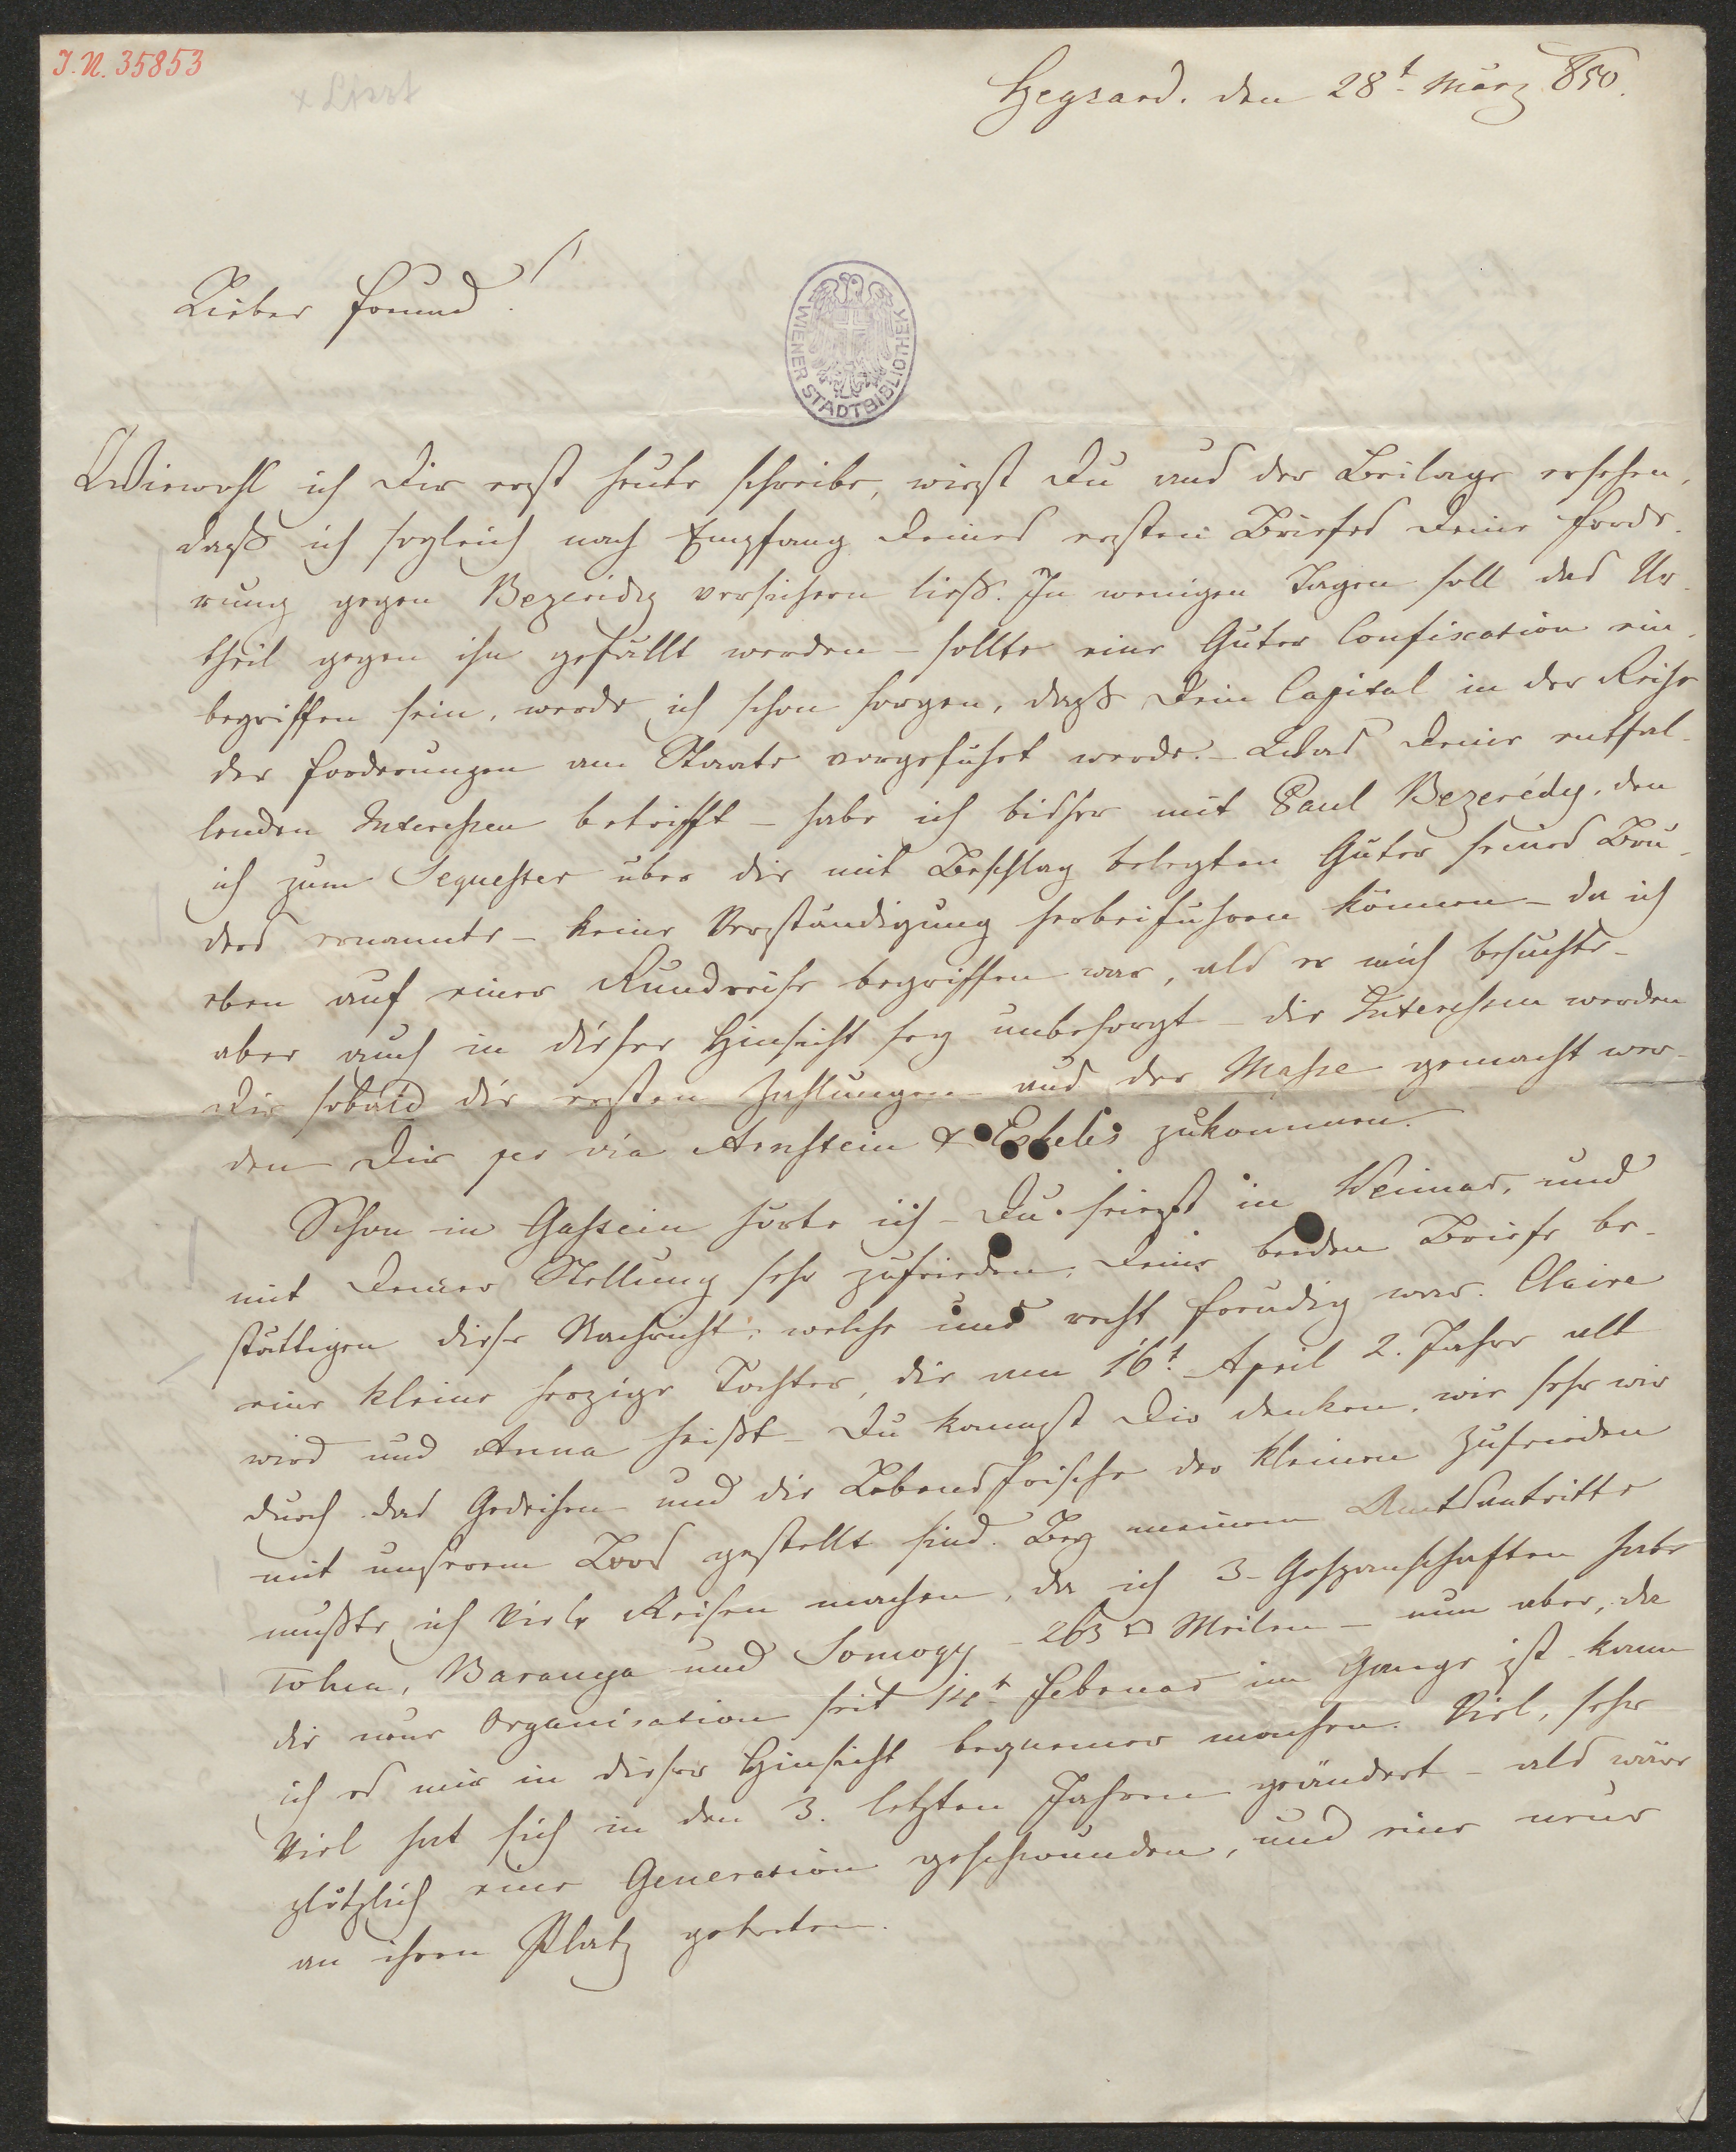 I.N. 35853
x Liszt
Szegzard. den 28t. März 850.
Lieber Freund!
WIENER STADTBIBLIOTHEK
Wiewohl ich Dir erst heute schreibe, wirst Du aus der Beilage ersehen,
daß ich sogleich nach Empfang Deines ersten Briefes Deine Forde-
rung gegen Bezerédy versichern ließ. In wenigen Tagen soll das Ur-
theil gegen ihn gefällt werden – sollte eine Güter Confiscation ein-
begriffen sein, werde ich schon sorgen, daß Dein Capital in der Reihe
der Forderungen am Staate vorgeführt werde. – Was Deine entfal-
lenden Interessen betrifft – habe ich bisher mit Paul Bezerédy, den
ich zum Sequester über die mit Beschlag belegten Güter seines Bru-
ders ernannte – keine Verständigung herbeiführen können – da ich
eben auf einer Rundreise begriffen war, als er mich besuchte –
aber auch in dieser Hinsicht sey unbesorgt – die Interessen werden
Dir sobald die ersten Zahlungen aus der Masse gemacht wer-
den Dir per via Arnstein & Eskeles zukommen.
Schon in Gastein hörte ich – Du seiest in Weimar, und
mit Deiner Stellung sehr zufrieden, Deine beiden Briefe be-
stättigen diese Nachricht, welche uns recht freudig war. Claire
eine kleine herzige Tochter, die am 16t. April 2. Jahre alt
wird und Anna heißt – Du kannst Dir denken, wie sehr wir
durch das Gedeihen und die Lebensfrische der Kleinen zufrieden
mit unserem Loos gestellt sind. Bey meinem Amtsantritte
mußte ich viele Reisen machen, da ich 3– Gespanschaften habe
Tolna, Baranya und Somogy – 263 □ Meilen – nun aber, da
die neue Organisation seit 14t. Februar im Gange ist – kann
ich es mir in dieser Hinsicht bequemer machen. Viel, sehr
viel hat sich in den 3. letzten Jahren geändert – als wäre
plötzlich eine Generation geschwunden, und eine neue
an ihren Platz getreten.